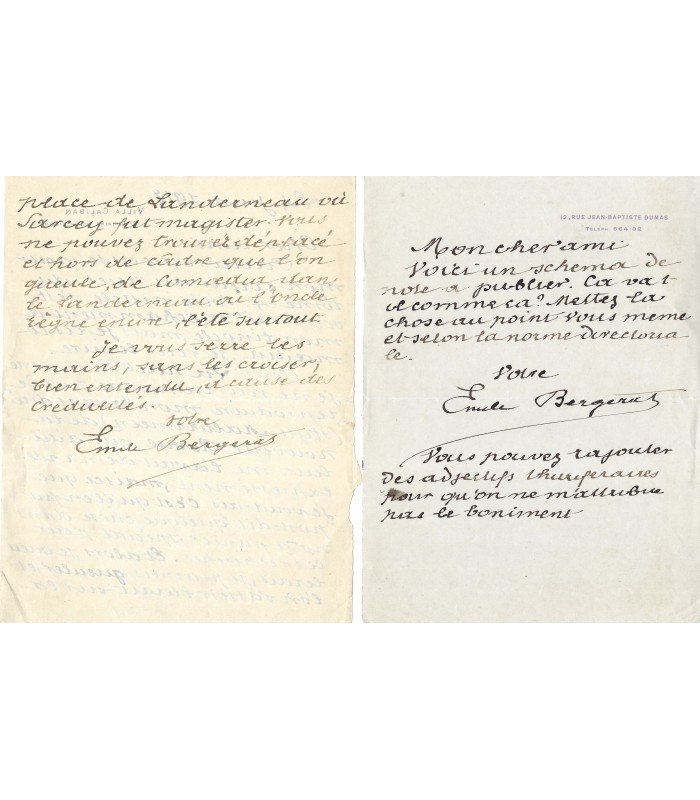 place de Landerneau où
Sarcey fut magister. Vous
ne pouvez trouver déplacé
et hors de cadre que l'on
gueule, de Comœdia dans
le Landerneau où l'oncle
règne encore, l'été surtout.
Je vous serre les
mains, sans les croiser,
bien entendu, à cause des
crédules.
votre
Emile Bergerat
12, RUE JEAN-BAPTISTE DUMAS
TÉLÉPH. 564-92
Mon cher ami
Voici un schema de
note a publier. Ca va t
il comme ça? Mettez la
chose au point vous meme
et selon la norme directoria
le.
Votre
Emile Bergerat
Vous pouvez rajouter
des adjectifs thuriféraires
pour qu'on ne m'attribue
pas le boniment